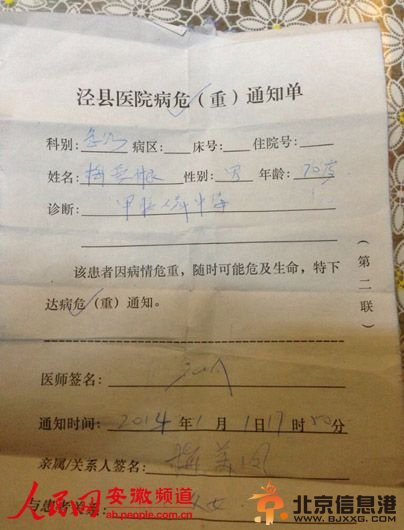 泾县医院病危（重）通知单
科别: 急诊 病区: 床号: 住院号:
姓名: 梅 性别: 男 年龄: 70岁
诊断: 甲胺磷中毒
该患者因病情危重，随时可能危及生命，特下
达病危（重）通知。
（第二联）
医师签名:
通知时间: 2014 年 1 月 1 日 17 时 50 分
亲属/关系人签名: 梅美凤
与患者关系: 父女
人民网 安徽频道
ah.people.com.cn
北京信息港
WWW.BJXXG.COM